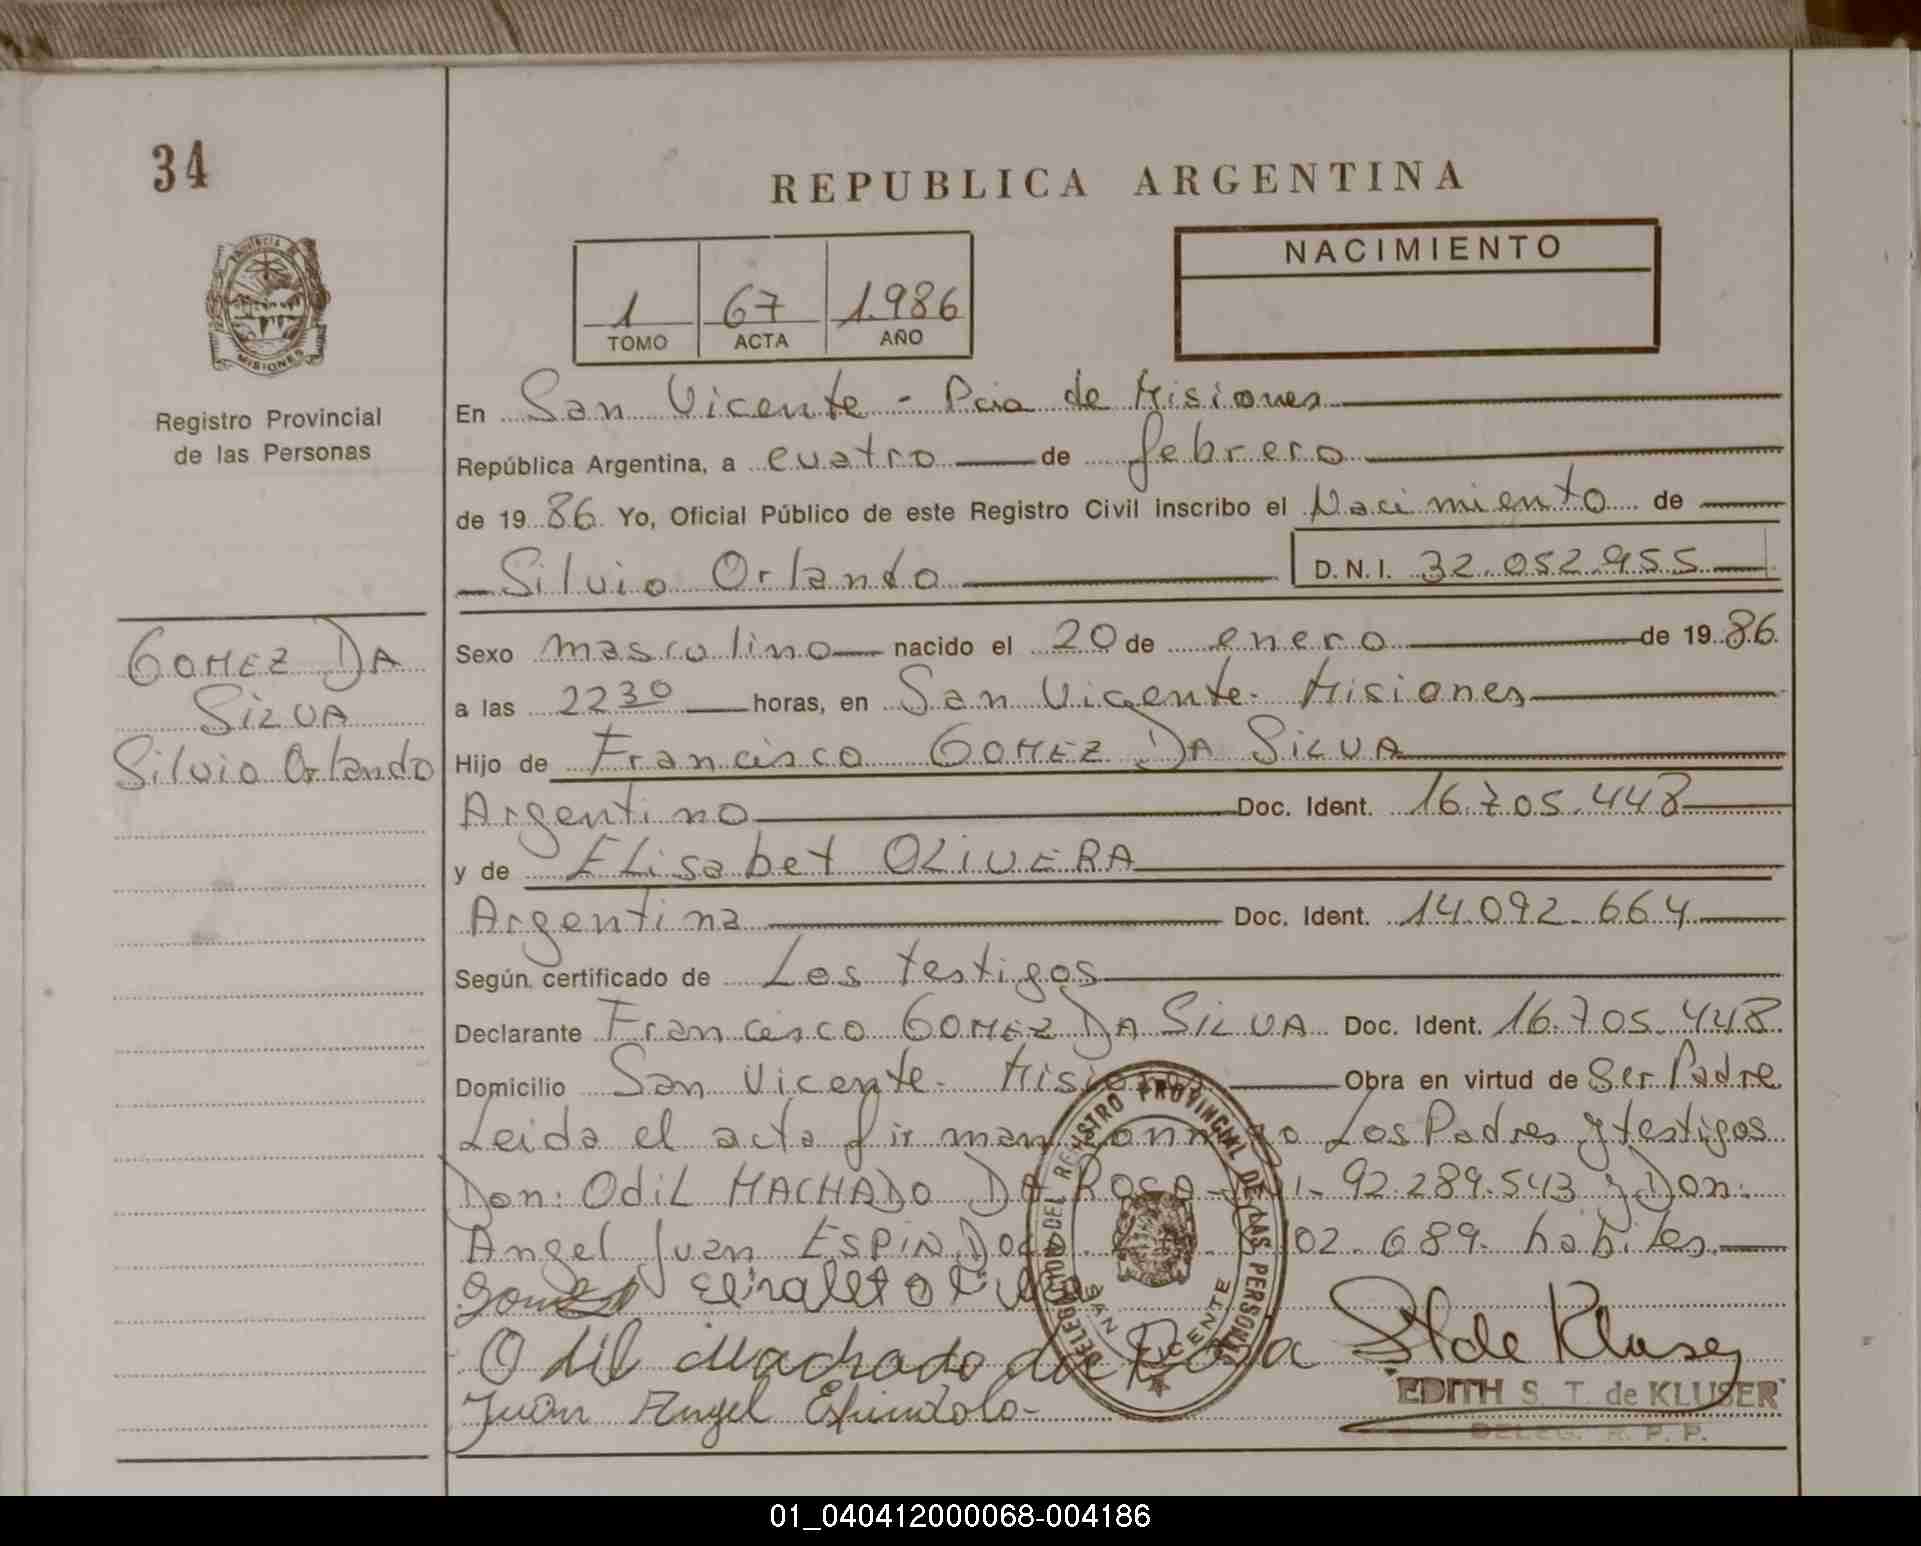 34
REPUBLICA ARGENTINA
NACIMIENTO
1 67 1.986
TOMO ACTA AÑO
Provincia de
MISIONES
Registro Provincial
de las Personas
En San Vicente - Pcia de Misiones
República Argentina, a cuatro de febrero
de 19 86 Yo, Oficial Público de este Registro Civil inscribo el Nacimiento de
Silvio Orlando D.N.I. 32.052.955
GOMEZ DA
SILVA
Silvio Orlando
Sexo masculino nacido el 20 de enero de 19 86
a las 22 30 horas, en San Vicente - Misiones
Hijo de Francisco GOMEZ DA SILVA
Argentino Doc. Ident. 16.705.448
y de ELisabet OLIVERA
Argentina Doc. Ident. 14.092.664
Según certificado de Los testigos
Declarante Francisco GOMEZ DA SILVA Doc. Ident. 16.705.448
Domicilio San Vicente - Misiones Obra en virtud de Ser Padre
Leida el acta firman conmigo Los Padres y testigos
Don: Odil MACHADO DA ROSA - 92.289.543 y Don:
Angel Juan ESPINDOLA 02.689 - habiles
Odil Machado da Rosa
Juan Angel Espindola
DELEGACION DEL REGISTRO PROVINCIAL DE LAS PERSONAS
SAN VICENTE
St de Kluser
EDITH S. T. de KLUSER
DELEG. R. P. P.
01_040412000068-004186